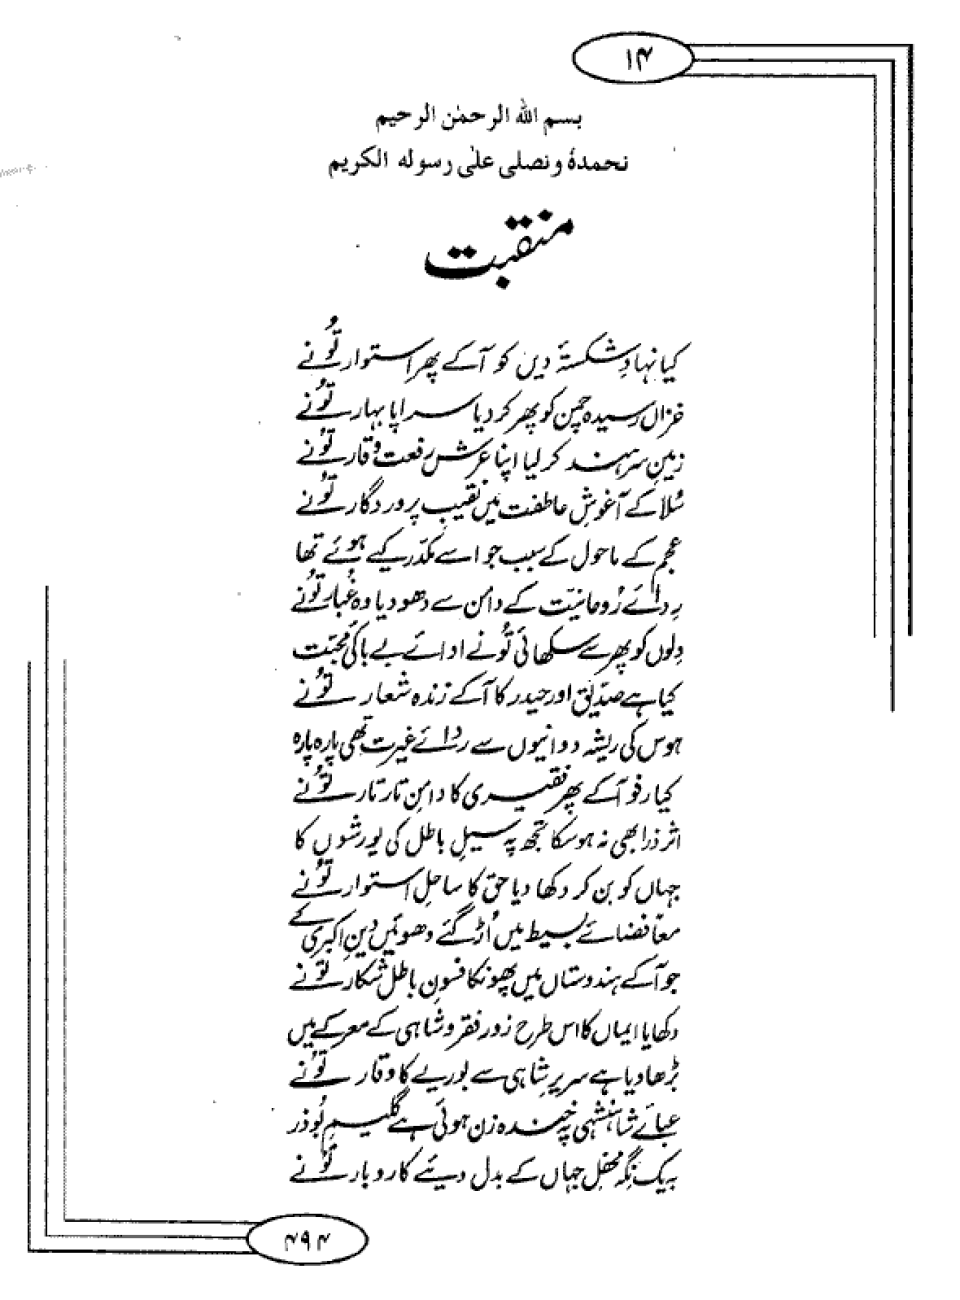 ۱۴
بسم اللہ الرحمٰن الرحیم
نحمدہٗ و نصلی علیٰ رسولہ الکریم
منقبت
کیا نہادِ شکستۂ دیں کو آ کے پھر استوار تُو نے
خزاں رسیدہ چمن کو پھر کر دیا سراپا بہار تُو نے
زمینِ سرہند کر لیا اپنا عرش رفعت وقار تُو نے
سُلا کے آغوشِ عاطفت میں نقیبِ پروردگار تُو نے
عجم کے ماحول کے سبب جو اسے مکدّر کیے ہوئے تھا
رِدائے رُوحانیّت کے دامن سے دھو دیا وہ غُبار تُو نے
دِلوں کو پھر سے سکھائی تُو نے ادائے بے باکیِ محبّت
کیا ہے صدّیق اور حیدر کا آ کے زندہ شعار تُو نے
ہوس کی ریشہ دوانیوں سے ردائے غیرت تھی پارہ پارہ
کیا رفو آ کے پھر فقیری کا دامنِ تار تار تُو نے
اثر ذرا بھی نہ ہو سکا تجھ پہ سیلِ باطل کی یورشوں کا
جہاں کو بن کر دکھا دیا حق کا ساحلِ استوار تُو نے
معاً فضائے بسیط میں اُڑ گئے دھوئیں دینِ اکبری کے
جو آ کے ہندوستاں میں پھونکا فسونِ باطل شکار تُو نے
دکھایا ایماں کا اس طرح زور فقر و شاہی کے معرکے میں
بڑھا دیا ہے سریرِ شاہی سے بوریے کا وقار تُو نے
عبائے شاہنشہی پہ خندہ زن ہوئی ہے گلیمِ بُوذر
بیک نِگہ محفلِ جہاں کے بدل دیئے کاروبار تُو نے
۴۹۴